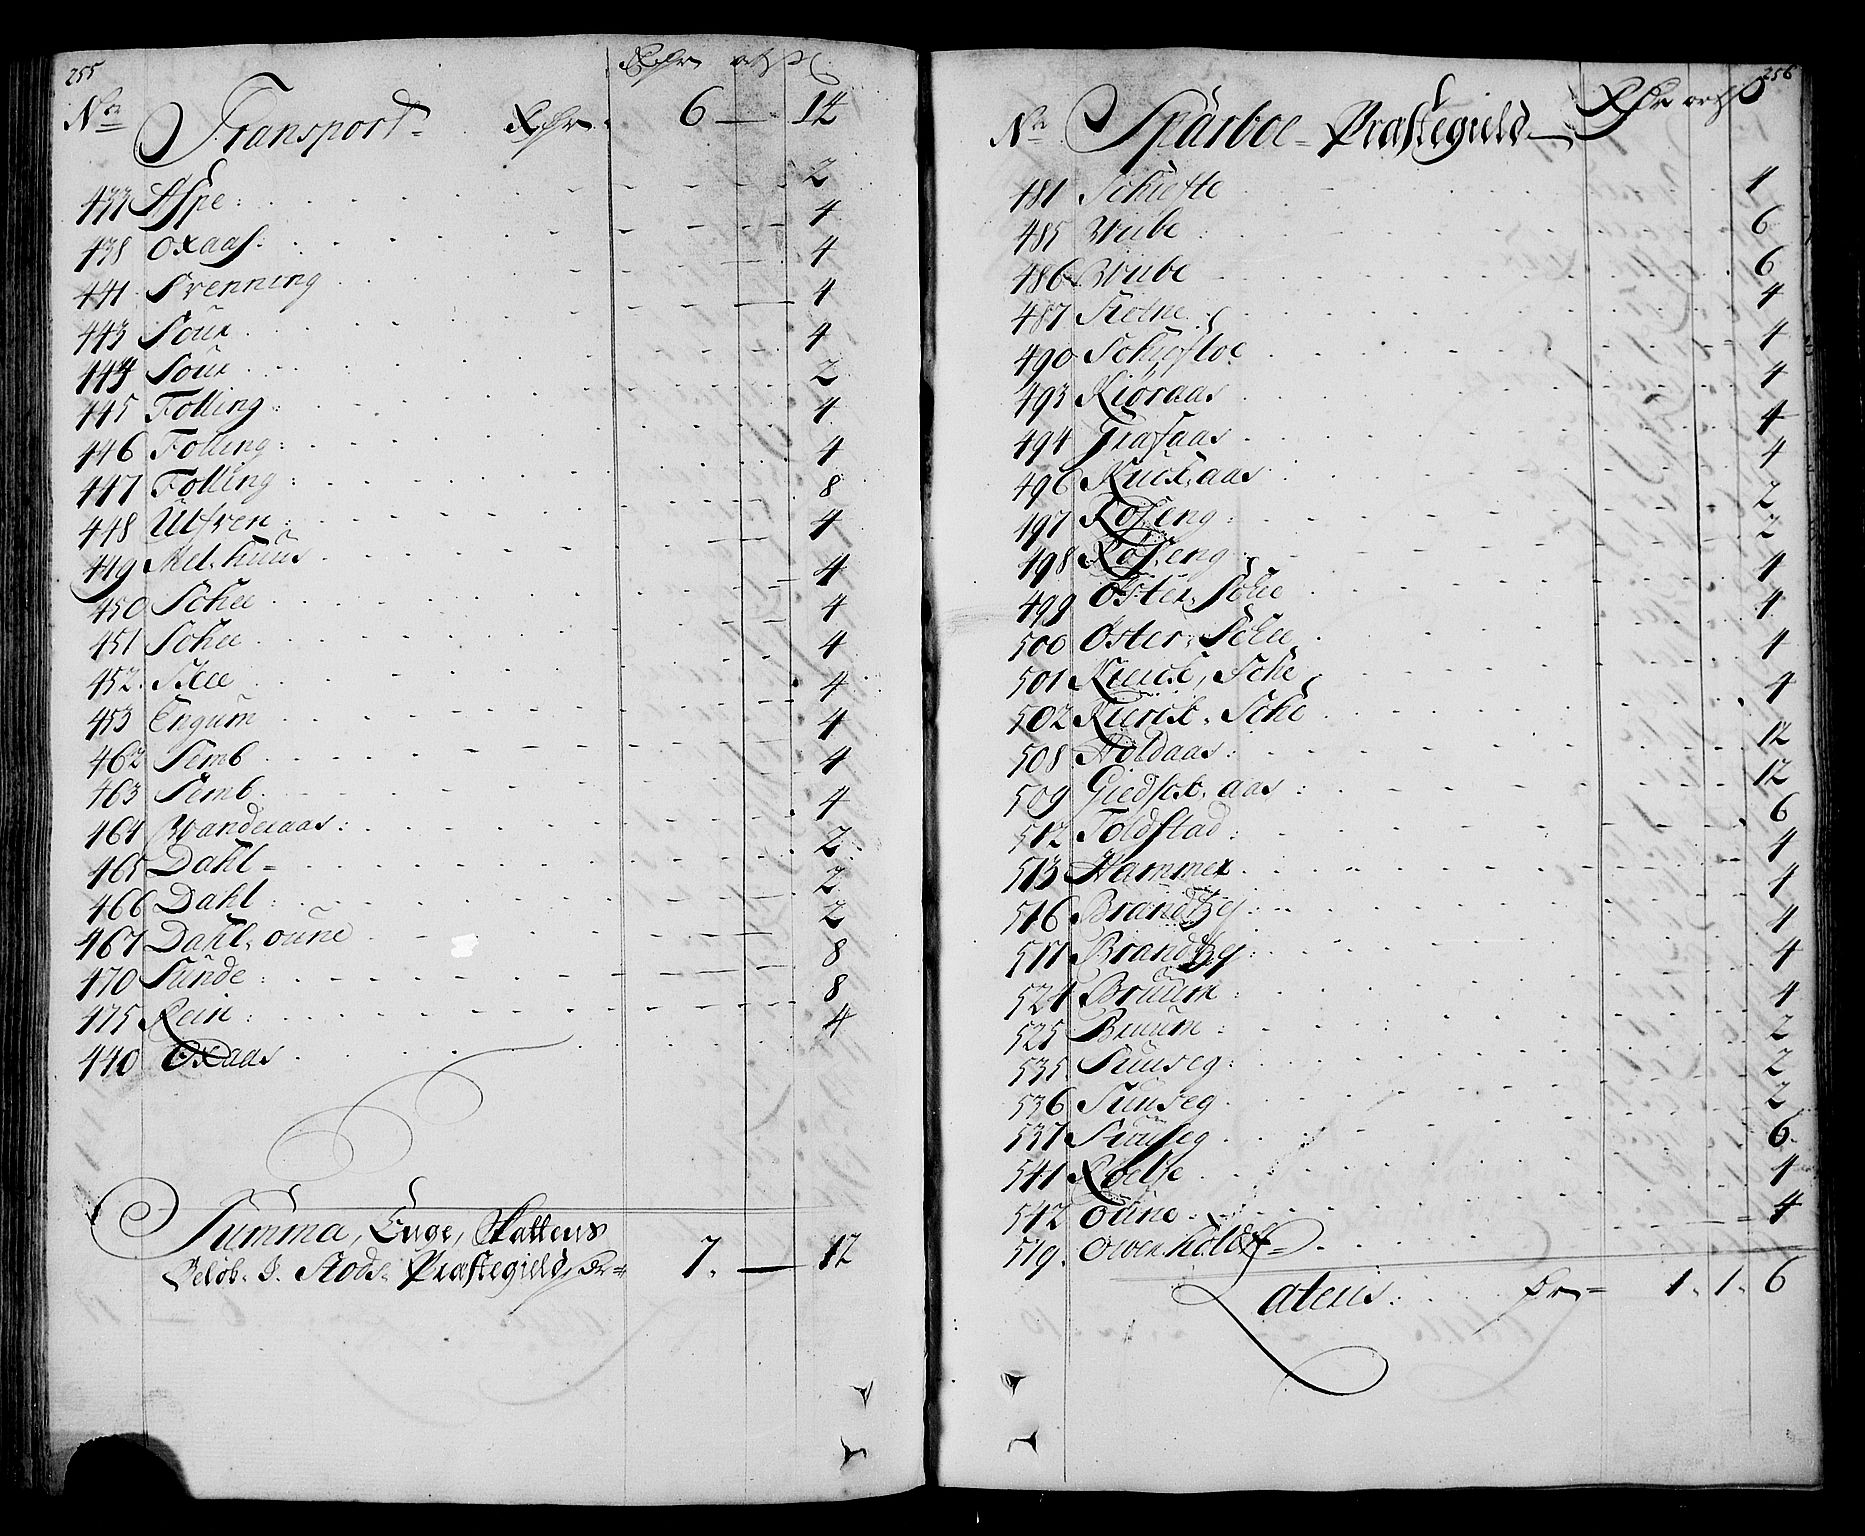 255
Rdr ort ß
No Transport Rdr 6 — 14
433 Aspe: 2
438 Oxaas: 4
441 Brenning 4
443 Sour 4
444 Sour 4
445 Følling: 2
446 Følling: 4
447 Følling: 4
448 Utsven: 8
449 Mel,huus 4
450 Schee 4
451 Schee 4
452. Skee 4
453 Engum 4
462 Semb 4
463 Semb. 4
464 Wanderaas: 4
465 Dahl = 2
466 Dahl 2
467 Dahl, oune 2
470 Sunde: 8
475 Rein: 8
440 Oxaas 4
Summa, Enge, Skattens
Beløb. I. Stods. Præstegield, Dr= 7. — 12
256
No Sparboe = Præstegield Rdr ort ß
481 Schiefte 4
485 Wibe 6
486 Wibe 6
487 Holne 4
490 Schiefloe 4
493 Kjøraas 4
494 Grafaas 4
496 Kuckaas 4
497 Roseng: 2
498 Roseng 2
499 Øster, Schee 4
500 Øster, Schee 4
501 Kirck, Sche 4
502 Kirck, Sche 4
508 Holdaas: 12
509 Giedsox, aas: 12
512 Toldstad: 6
513 Hammer 4
516 Brandtzeg: 4
517 Brandtzeg: 4
524 Bruum: 4
525 Bruum: 4
535 Sunseg: 2
536 Sunseg. 2
537 Sunseg. 2
541 Roelse 6
542 Oune 4
519. Owerholdt = 4
Lateris: Dr = 1. 1. 6